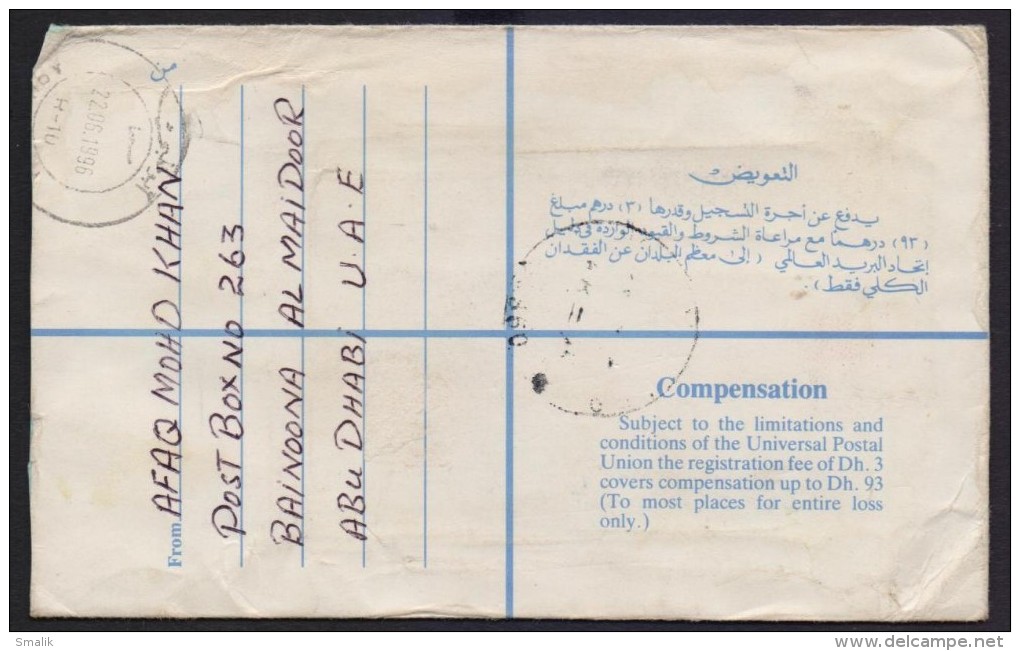 من
From AFAQ MOHD KHAN
POST BOX NO 263
BAINOONA AL MAIDOOR
ABU DHABI U.A.E
22.06.1996
H-10
التعويض
يدفع عن أجرة التسجيل وقدرها (٣) درهم مبلغ
(٩٣) درهما مع مراعاة الشروط والقيود الواردة في دليل
إتحاد البريد العالمي (إلى معظم البلدان عن الفقدان
الكلي فقط).
Compensation
Subject to the limitations and
conditions of the Universal Postal
Union the registration fee of Dh. 3
covers compensation up to Dh. 93
(To most places for entire loss
only.)
Smalik
www.delcampe.net